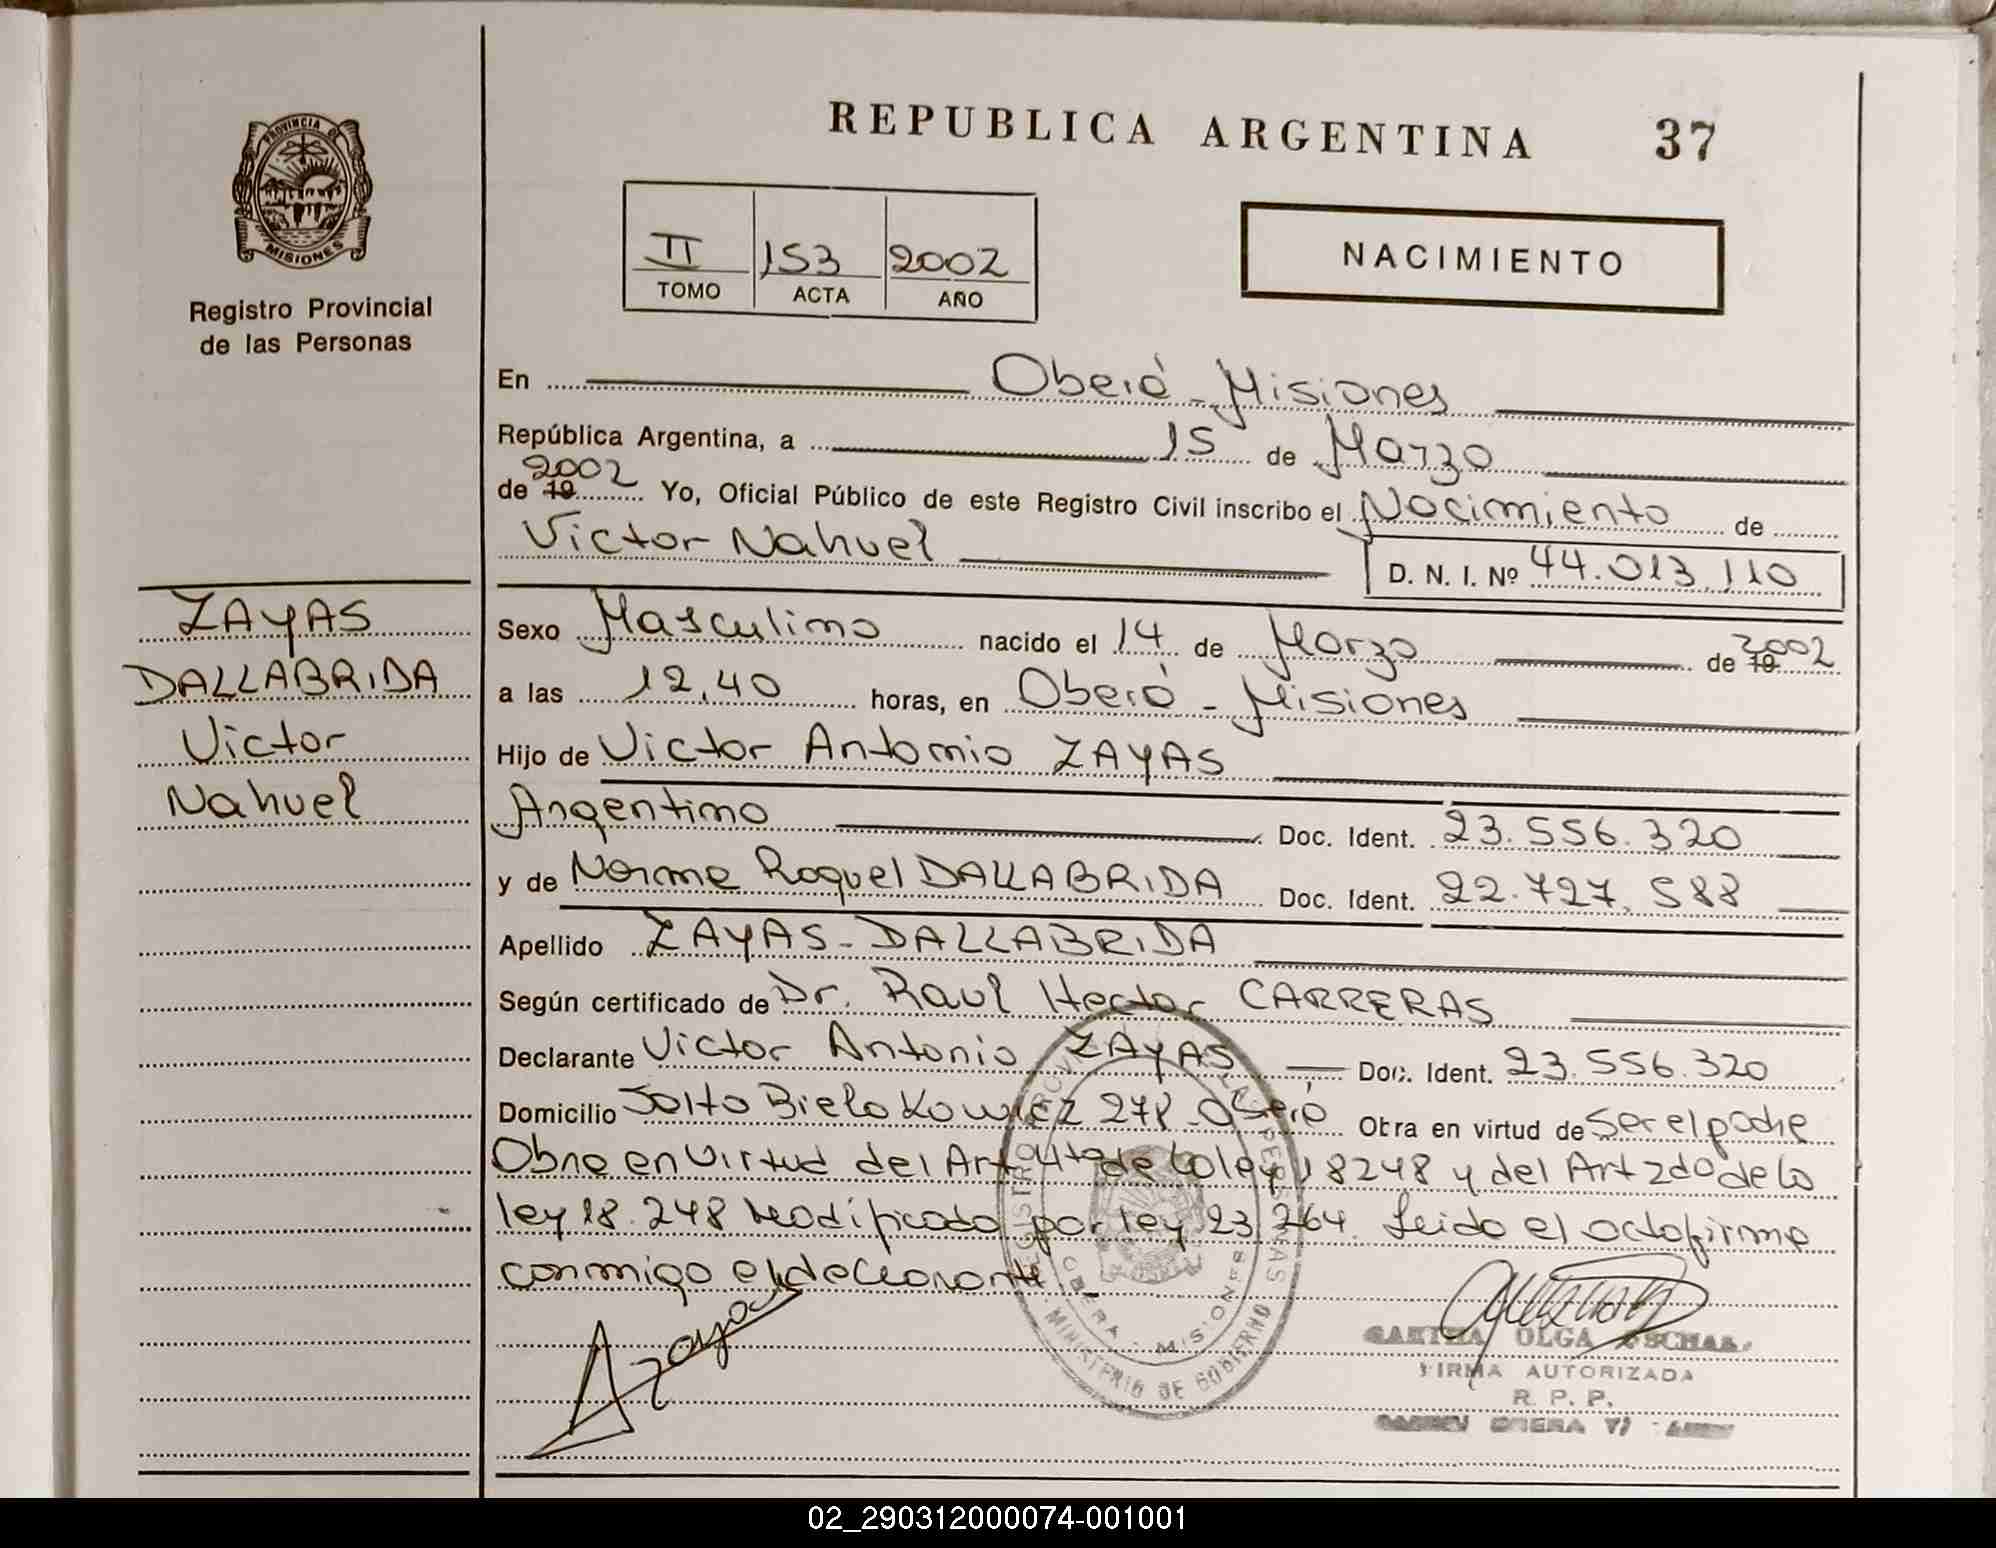 PROVINCIA DE
MISIONES
Registro Provincial
de las Personas
REPUBLICA ARGENTINA 37
II 153 2002
TOMO ACTA AÑO
NACIMIENTO
En Oberá - Misiones
República Argentina, a 15 de Marzo
de 19 2002 Yo, Oficial Público de este Registro Civil inscribo el Nacimiento de
Victor Nahuel D. N. I. Nº 44.013.110
ZAYAS
DALLABRIDA
Victor
Nahuel
Sexo Masculino nacido el 14 de Marzo de 19 2002
a las 12,40 horas, en Oberá - Misiones
Hijo de Victor Antonio ZAYAS
Argentino Doc. Ident. 23.556.320
y de Norma Raquel DALLABRIDA Doc. Ident. 22.727.588
Apellido ZAYAS - DALLABRIDA
Según certificado de Dr. Raul Hector CARRERAS
Declarante Victor Antonio ZAYAS Doc. Ident. 23.556.320
Domicilio Bielakowicz 278 - Oberá Obra en virtud de ser el padre
Obra en virtud del Art 4to de la ley 18248 y del Art 2do de la
ley 18.248 modificado por ley 23.264. Leido el acta firma
conmigo el declarante.-
Zayas
REGISTRO PROVINCIAL DE LAS PERSONAS
OBERA - MISIONES
MINISTERIO DE GOBIERNO
OLGA
FIRMA AUTORIZADA
R. P. P.
OBERA
02_290312000074-001001